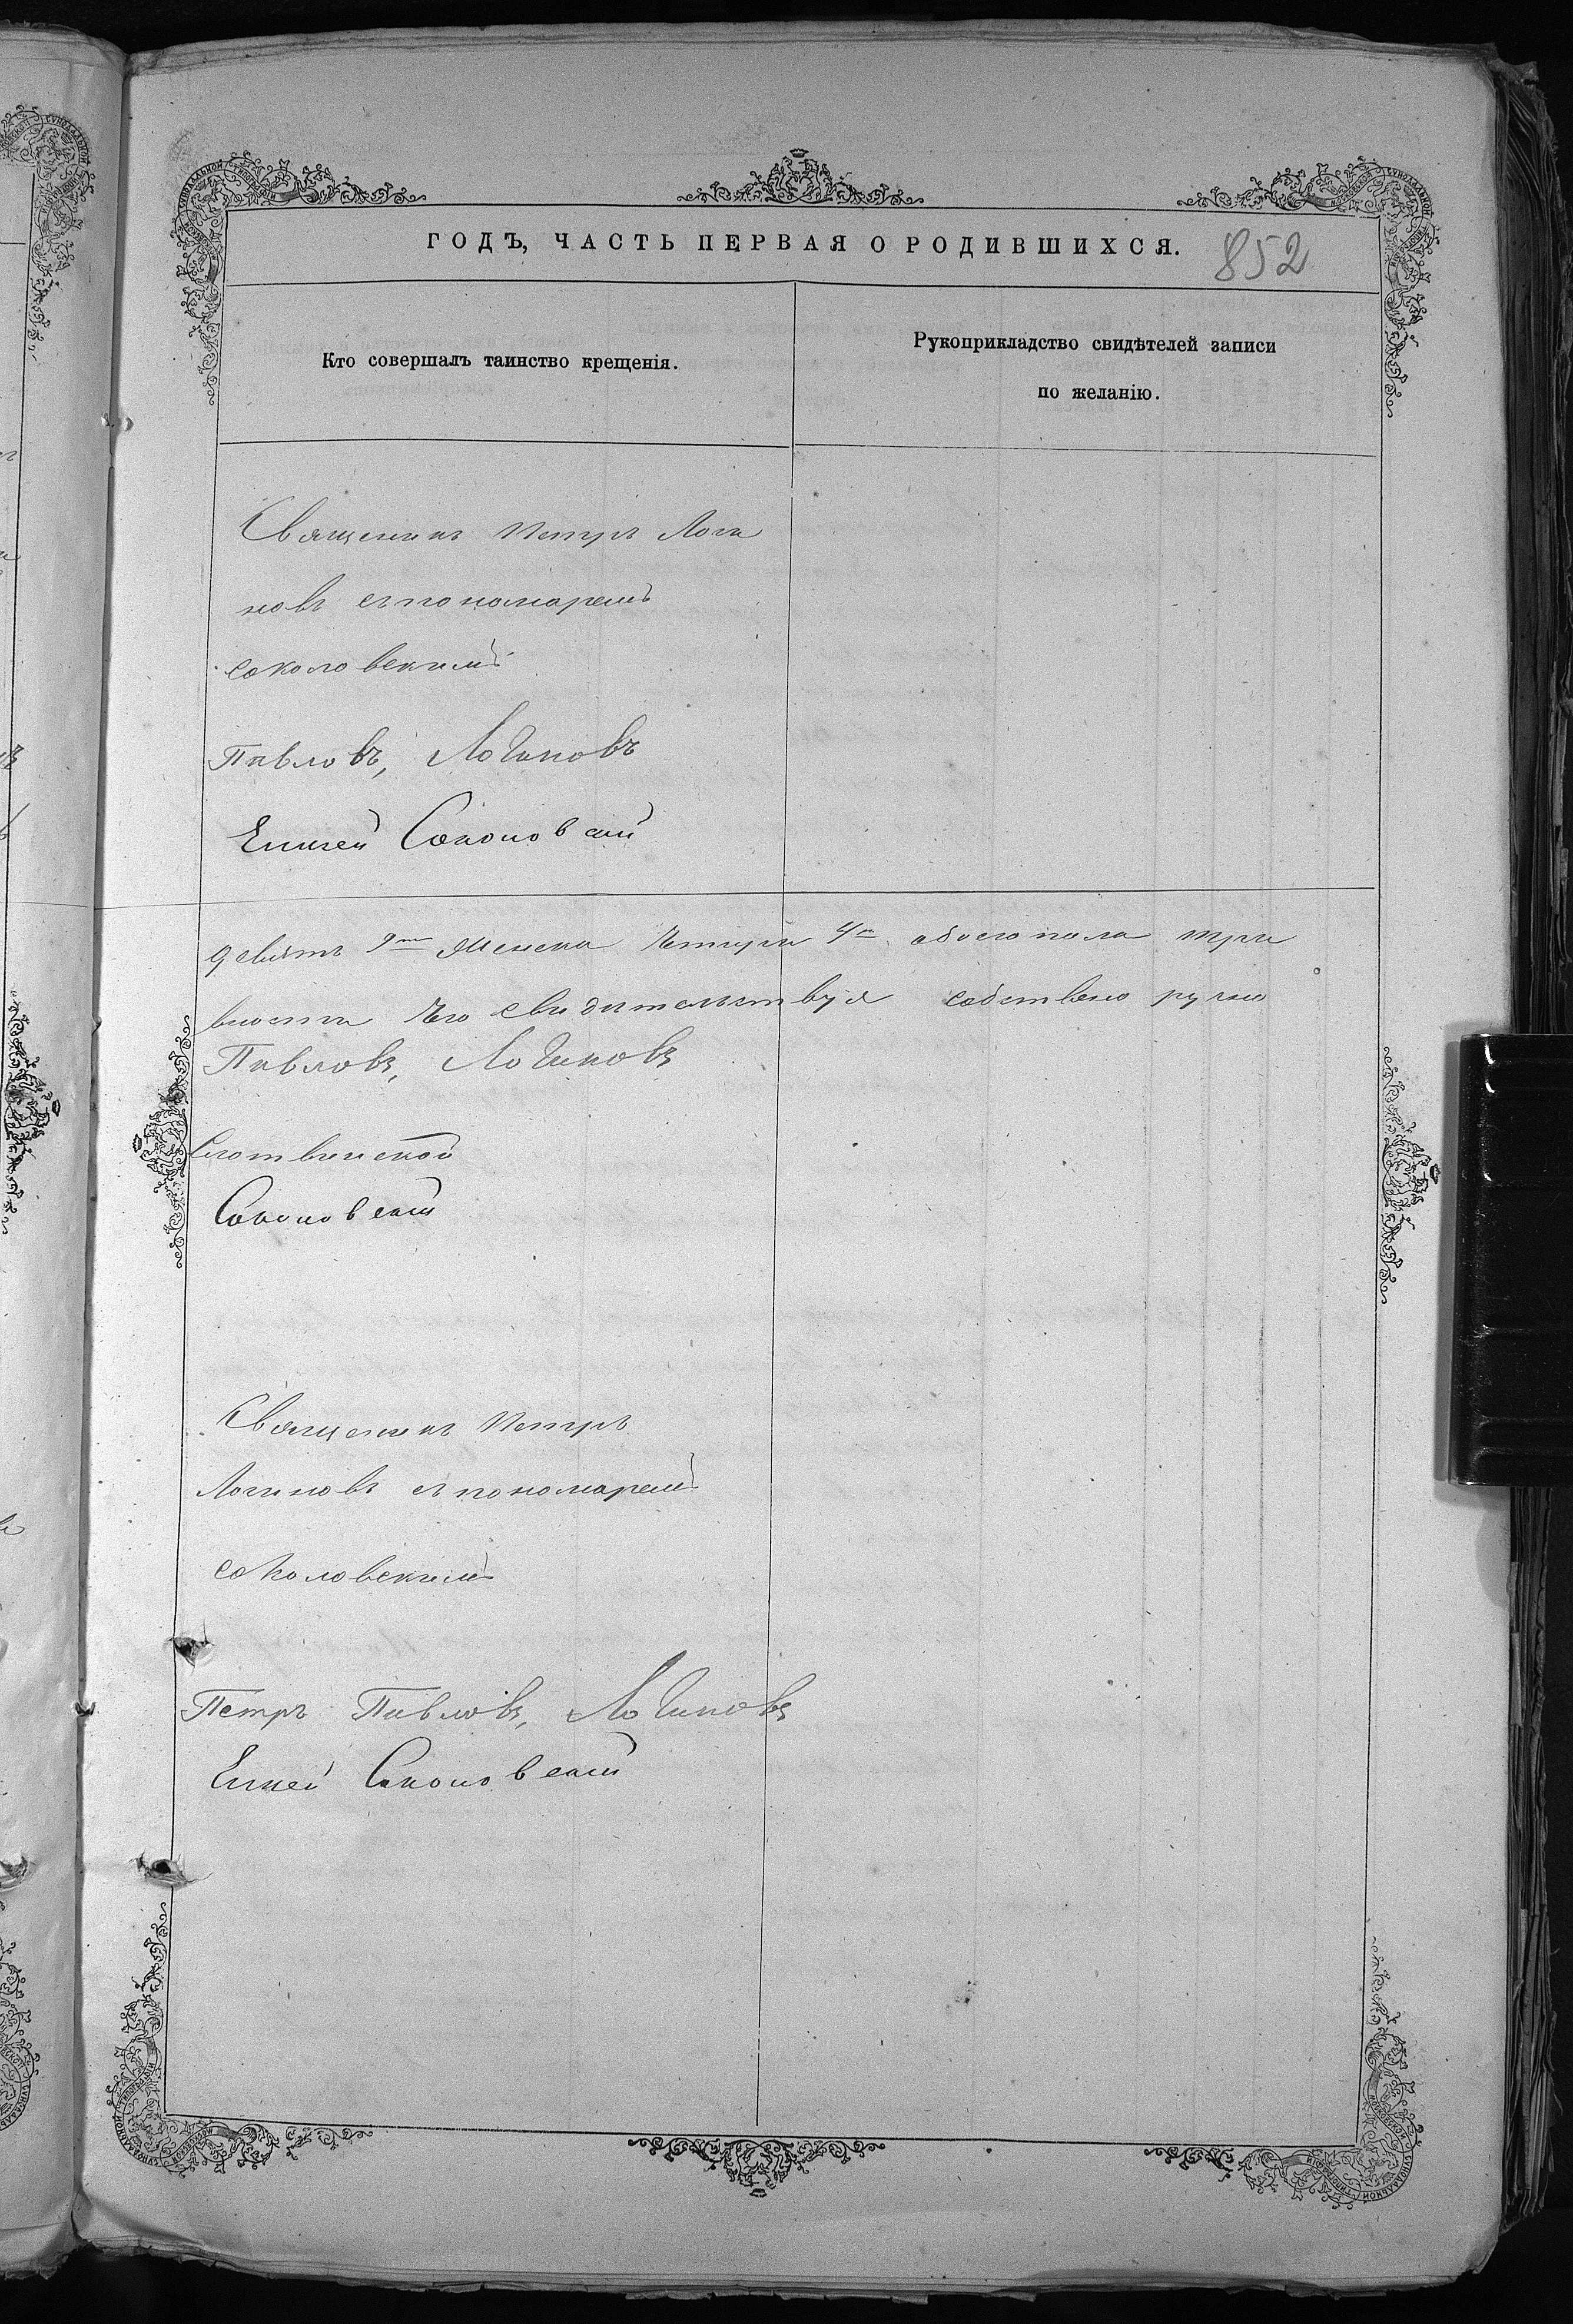 ГОДЪ, ЧАСТЬ ПЕРВАЯ О РОДИВШИХСЯ.
852
Кто совершалъ таинство крещенія.
Рукоприкладство свидѣтелей записи
по желанію.
Священикъ Петръ Логи
новъ съ пономаремъ
Соколовскимъ
Павловъ, Логиновъ
Елисей Соколовскій
девять 9ть Женска четыри 4ри обоего пола три
Его свидительствуя собствено ручно
Павловъ, Логиновъ
Слотвинской
Соколовскій
Священикъ Петръ
Логиновъ съ пономаремъ
Соколовскимъ
Петръ Павловъ, Логиновъ
Соколовскій